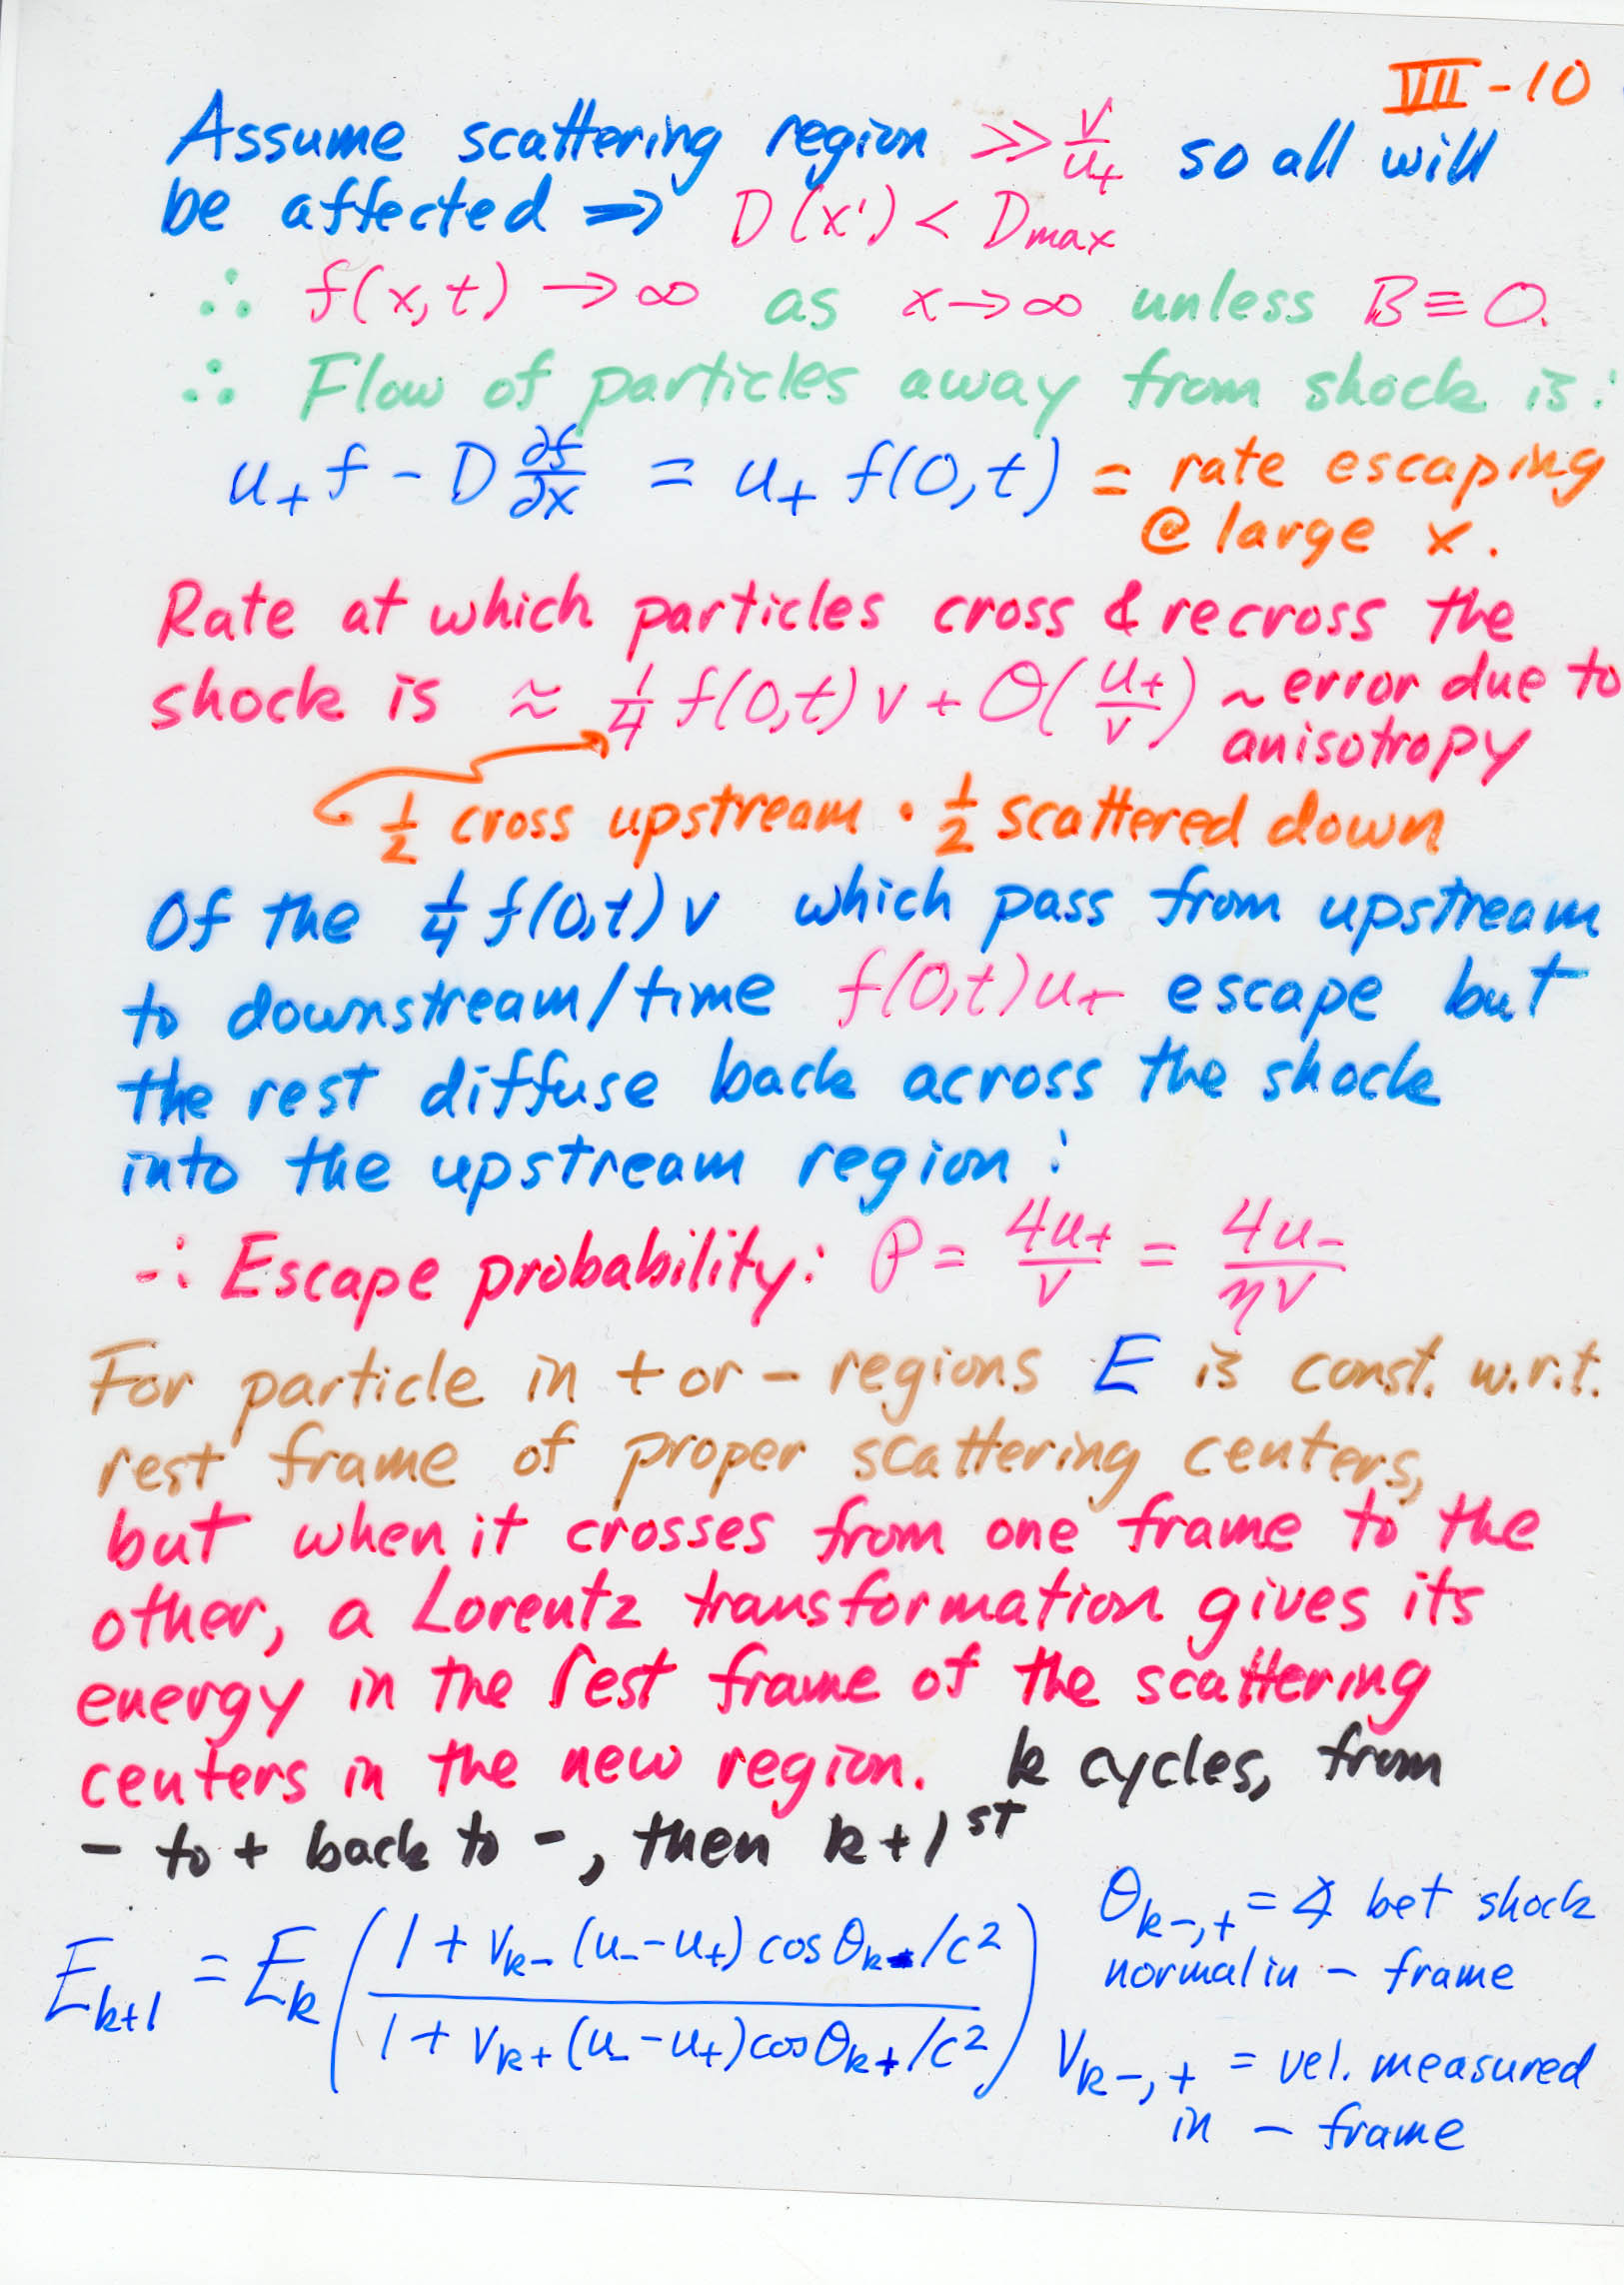 VIII-10
Assume scattering region >> v/u₊ so all will
be affected ⇒ D(x') < Dmax
∴ f(x,t) → ∞ as x→∞ unless B ≡ 0.
∴ Flow of particles away from shock is:
u₊f - D ∂f/∂x = u₊ f(0,t) = rate escaping
@ large x.
Rate at which particles cross & recross the
shock is ≈ 1/4 f(0,t) v + O(u₊/v) ~ error due to
anisotropy
1/2 cross upstream · 1/2 scattered down
Of the 1/4 f(0,t) v which pass from upstream
to downstream/time f(0,t)u₊ escape but
the rest diffuse back across the shock
into the upstream region:
∴ Escape probability: P = 4u₊/v = 4u₋/ηv
For particle in + or - regions E is const. w.r.t.
rest frame of proper scattering centers,
but when it crosses from one frame to the
other, a Lorentz transformation gives its
energy in the rest frame of the scattering
centers in the new region. k cycles, from
- to + back to -, then k+1st
E_{k+1} = E_k ( (1 + v_{k-} (u₋-u₊) cos θ_{k-}/c²) / (1 + v_{k+} (u₋-u₊) cos θ_{k+}/c²) )
θ_{k-,+} = ∢ bet shock
normal in - frame
v_{k-,+} = vel. measured
in - frame